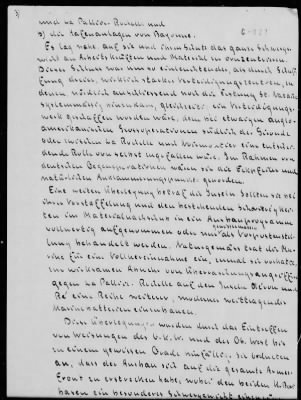 3)
C-021
und La Pallice-Rochelle und
3) die Hafenanlagen von Bayonne.
Es lag nahe, auf sie und ihren Schutz das ganze Schwerge-
wicht an Arbeitskräften und Material zu konzentrieren.
Dieser Schluss war um so einleuchtender, als durch Schaf-
fung dieser, wirklich starken Verteidigungszentren, zu
denen, nördlich anschliessend noch die Festung St. Nazaire
systemmässig hinzukam, gleichzeitig ein Verteidigungs-
werk geschaffen worden wäre, dem bei etwaigen anglo-
amerikanischen Grossoperationen südlich der Gironde
oder zwischen La Rochelle und Noirmoutier eine entschei-
dende Rolle von selbst zugefallen wäre. Im Rahmen von
deutschen Gegenoperationen wären sie die Eckpfeiler und
natürlichen Ausklammerungspunkte geworden.
Eine weitere Überlegung betraf die Inseln. Sollten sie bei
ihrer Vorstaffelung und den bestehenden Schwierigkei-
ten im Materialnachschub in ein Ausbauprogramm
vollwertig aufgenommen oder nur als Vorpostenstel-
lung behandelt werden. Naturgemäss trat die Ma-
rine für eine Vollhereinnahme ein, zumal sie vorhatte,
zur wirksamen Abwehr von Überraschungsangriffen
gegen La Pallice-Rochelle auf den Inseln Oléron und
Ré eine Reihe weiterer, moderner weittragender
Marinebatterien einzubauen.
Diese Überlegungen wurden durch das Eintreffen
von Weisungen des O.K.W. und des Ob. West bis
zu einem gewissen Grade hinfällig. Sie ordneten
an, dass der Ausbau sich auf die gesamte Armee-
Front zu erstrecken habe, wobei den beiden U-Boot-
basen ein besonderes Schwergewicht